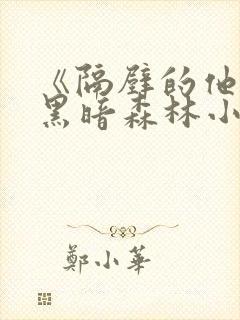 《隔壁的他
黑暗森林小
鄭小華